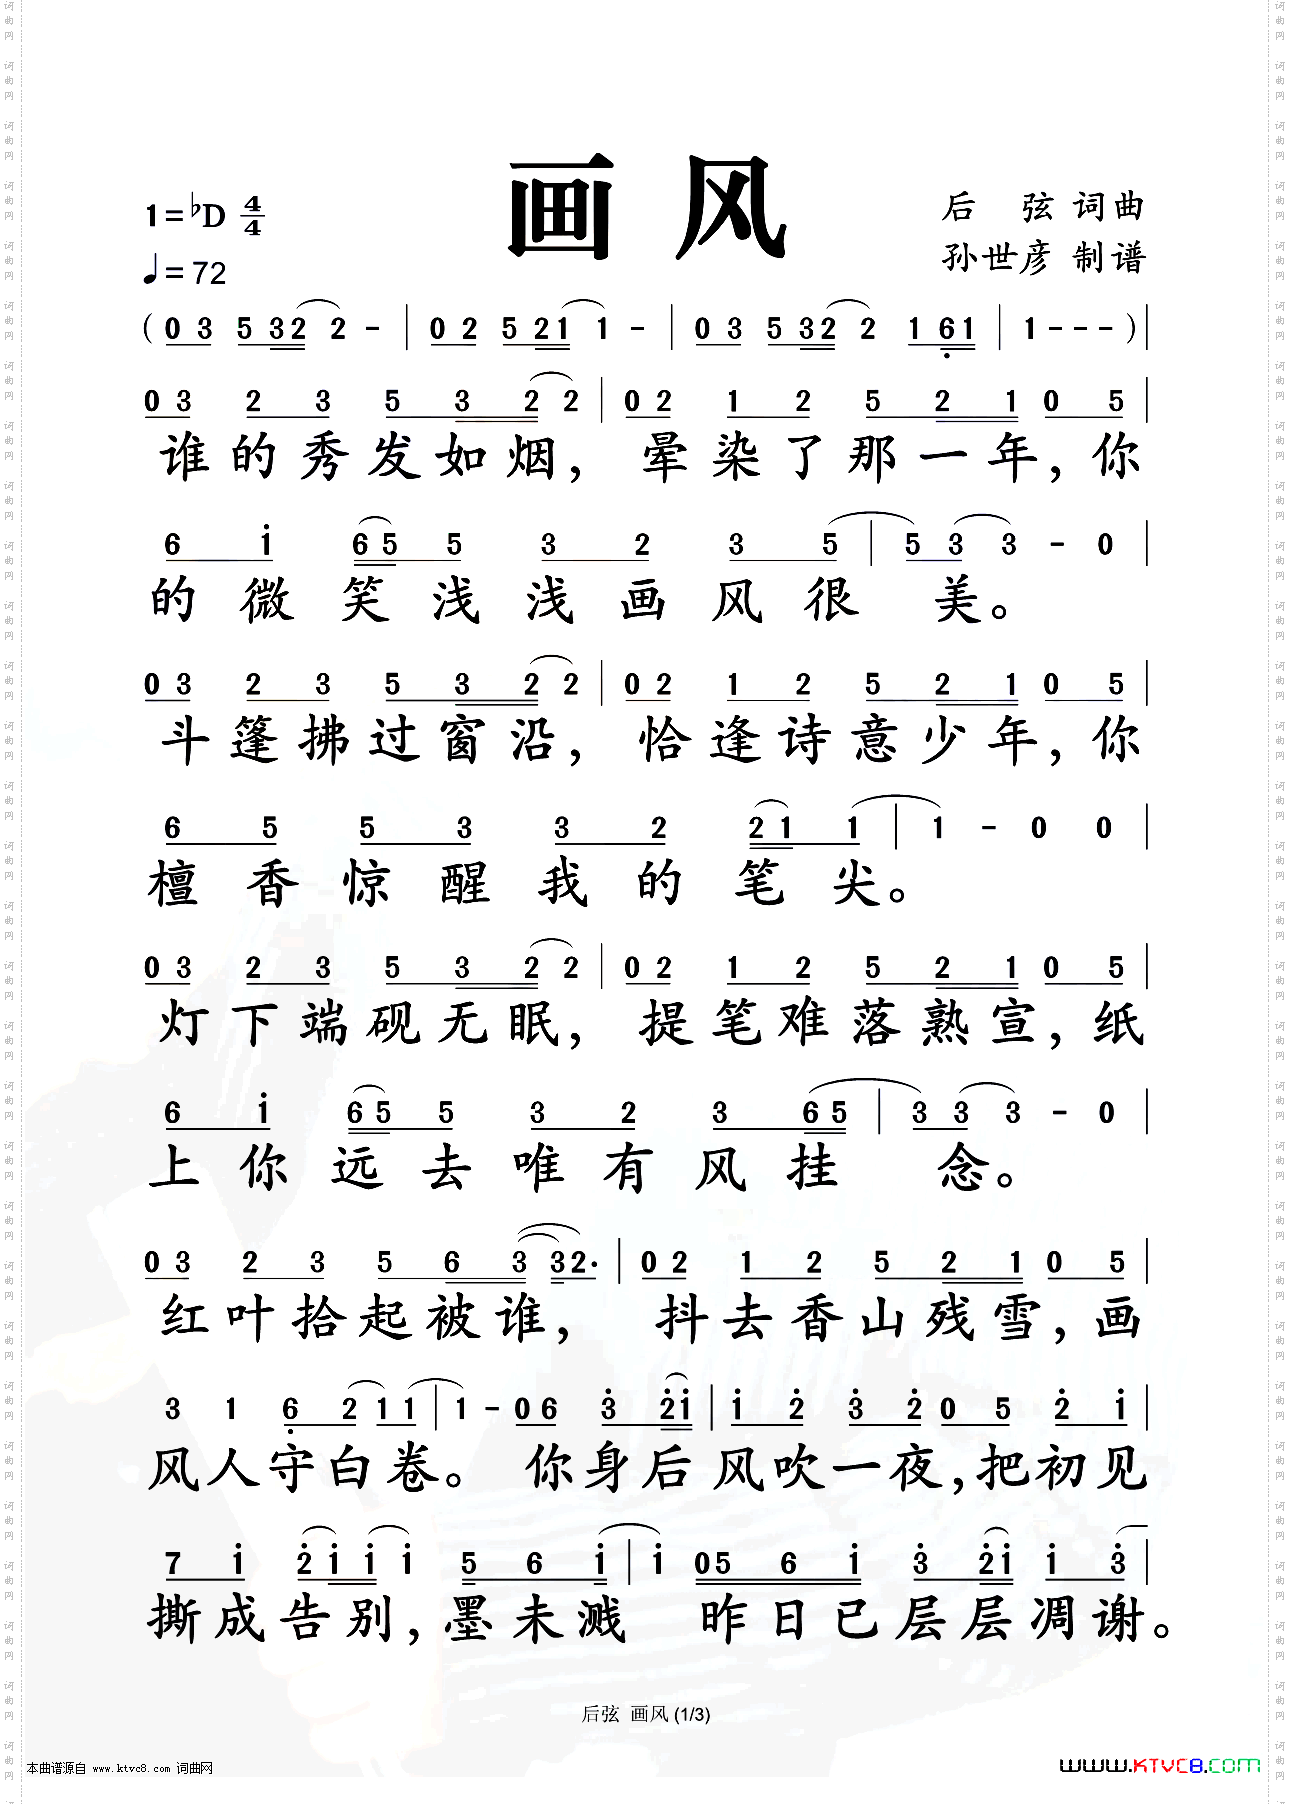 画风
1=♭D 4/4
后弦 词曲
♩=72
孙世彦 制谱
(0 3 5 3 2 2 - | 0 2 5 2 1 1 - | 0 3 5 3 2 2 1 6 1 | 1 - - - ) |
0 3 2 3 5 3 2 2 | 0 2 1 2 5 2 1 0 5 |
谁的秀发如烟,晕染了那一年,你
6 i 6 5 5 3 2 3 5 | 5 3 3 - 0 |
的微笑浅浅画风很美。
0 3 2 3 5 3 2 2 | 0 2 1 2 5 2 1 0 5 |
斗篷拂过窗沿,恰逢诗意少年,你
6 5 5 3 3 2 2 1 1 | 1 - 0 0 |
檀香惊醒我的笔尖。
0 3 2 3 5 3 2 2 | 0 2 1 2 5 2 1 0 5 |
灯下端砚无眠,提笔难落熟宣,纸
6 i 6 5 5 3 2 3 6 5 | 3 3 3 - 0 |
上你远去唯有风挂念。
0 3 2 3 5 6 3 3 2. | 0 2 1 2 5 2 1 0 5 |
红叶拾起被谁,抖去香山残雪,画
3 1 6 2 1 1 | 1 - 0 6 3 2 i | i 2 3 2 0 5 2 i |
风人守白卷。你身后风吹一夜,把初见
7 i 2 i i i 5 6 i | i 0 5 6 i 3 2 i i 3
撕成告别,墨未溅 昨日已层层凋谢。
后弦 画风 (1/3)
本曲谱源自 www.ktvc8.com 词曲网
WWW.KTVC8.COM